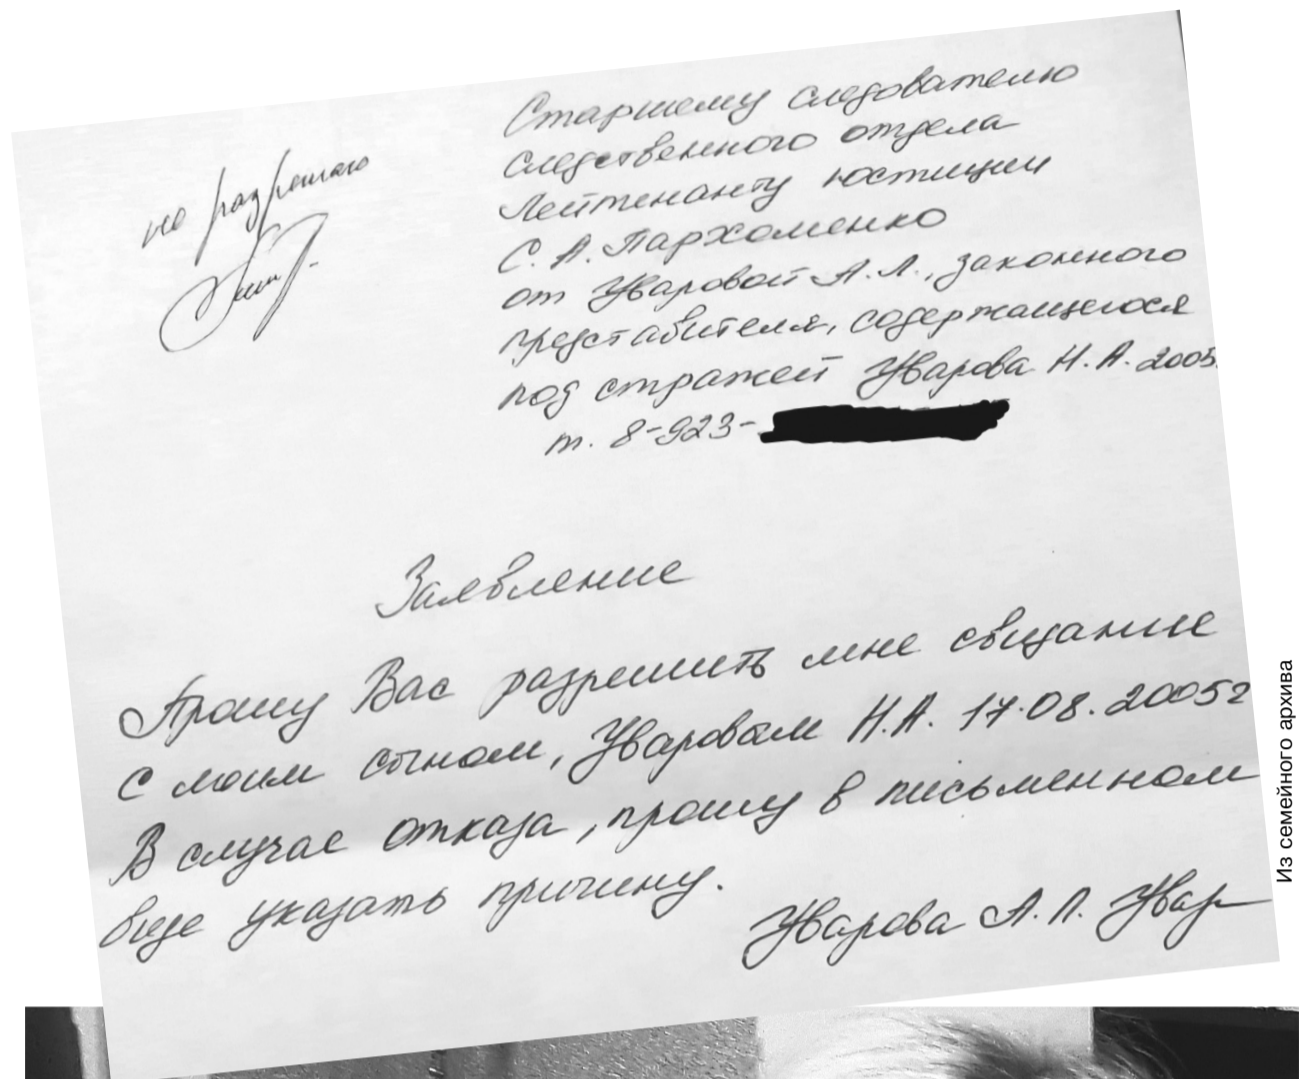 не разрешаю
Старшему следователю
следственного отдела
Лейтенанту юстиции
С. А. Пархоменко
от Уваровой А. Л., законного
представителя, содержащегося
под стражей Уварова Н. А. 2005
т. 8-923-
Заявление
Прошу Вас разрешить мне свидание
с моим сыном, Уваровым Н.А. 17.08.2005г
В случае отказа, прошу в письменном
виде указать причину.
Уварова А. Л. Увар
Из семейного архива